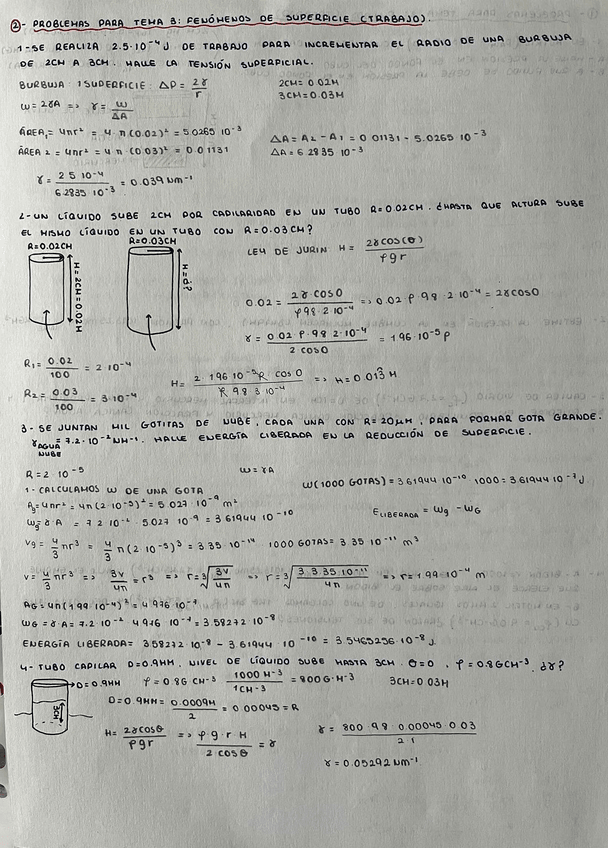 ②- PROBLEMAS PARA TEMA 3: FENÓMENOS DE SUPERFICIE (TRABAJO).
1-SE REALIZA 2.5·10⁻⁴ J DE TRABAJO PARA INCREMENTAR EL RADIO DE UNA BURBUJA
DE 2CM A 3CM. HALLE LA TENSIÓN SUPERFICIAL.
BURBUJA 1 SUPERFICIE: ΔP = 2γ/r
2CM = 0.02M
3CM = 0.03M
W = 2γA => γ = W/ΔA
ÁREA₁ = 4πr² = 4·π(0.02)² = 5.0265·10⁻³
ÁREA 2 = 4πr² = 4π(0.03)² = 0.01131
ΔA = A₂ - A₁ = 0.01131 - 5.0265·10⁻³
ΔA = 6.2835·10⁻³
γ = 2.5·10⁻⁴/6.2835·10⁻³ = 0.039 Nm⁻¹
2-UN LÍQUIDO SUBE 2CM POR CAPILARIDAD EN UN TUBO R=0.02CM. ¿HASTA QUE ALTURA SUBE
EL MISMO LÍQUIDO EN UN TUBO CON R=0.03CM?
R=0.02CM
H=2CM=0.02M
R=0.03CM
H=¿?
LEY DE JURIN H = 2γcos(θ)/ρgr
0.02 = 2γ·cos0/ρ9.8·2·10⁻⁴ => 0.02·ρ·9.8·2·10⁻⁴ = 2γcos0
γ = 0.02·ρ·9.8·2·10⁻⁴/2cos0 = 1.96·10⁻⁵ρ
R₁ = 0.02/100 = 2·10⁻⁴
R₂ = 0.03/100 = 3·10⁻⁴
H = 2·1.96·10⁻⁵ρ·cos0/ρ·9.8·3·10⁻⁴ => H = 0.013̂ M
3-SE JUNTAN MIL GOTITAS DE NUBE, CADA UNA CON R=20μM, PARA FORMAR GOTA GRANDE.
γ AGUA NUBE = 7.2·10⁻² NM⁻¹. HALLE ENERGÍA LIBERADA EN LA REDUCCIÓN DE SUPERFICIE.
R = 2·10⁻⁵
W = γA
W(1000 GOTAS) = 3.61944·10⁻¹⁰·1000 = 3.61944·10⁻⁷ J
1-CALCULAMOS W DE UNA GOTA
Ag = 4πr² = 4π(2·10⁻⁵)² = 5.027·10⁻⁹ m²
Wg = γ·A = 7.2·10⁻²·5.027·10⁻⁹ = 3.61944·10⁻¹⁰
E LIBERADA = Wg - WG
Vg = 4/3πr³ = 4/3π(2·10⁻⁵)³ = 3.35·10⁻¹⁴ 1000 GOTAS = 3.35·10⁻¹¹ m³
V = 4/3πr³ => 3V/4π = r³ => r = ∛(3V/4π) => r = ∛(3·3.35·10⁻¹¹/4π) => r = 1.99·10⁻⁴ m
AG = 4π(1.99·10⁻⁴)² = 4.976·10⁻⁷
WG = γA = 7.2·10⁻²·4.976·10⁻⁷ = 3.58272·10⁻⁸
ENERGÍA LIBERADA = 3.58272·10⁻⁸ - 3.61944·10⁻¹⁰ = 3.5465256·10⁻⁸ J.
4-TUBO CAPILAR D=0.9MM, NIVEL DE LÍQUIDO SUBE HASTA 3CM. θ=0, ρ=0.8GCM⁻³. ¿γ?
D=0.9MM
3CM
ρ = 0.8G·CM⁻³ · 1000M⁻³/1CM⁻³ = 800G·M⁻³
3CM = 0.03M
D = 0.9MM = 0.0009M/2 = 0.00045 = R
H = 2γcosθ/ρgr => ρ·g·r·H/2cosθ = γ
γ = 800·9.8·0.00045·0.03/2·1
γ = 0.05292 Nm⁻¹